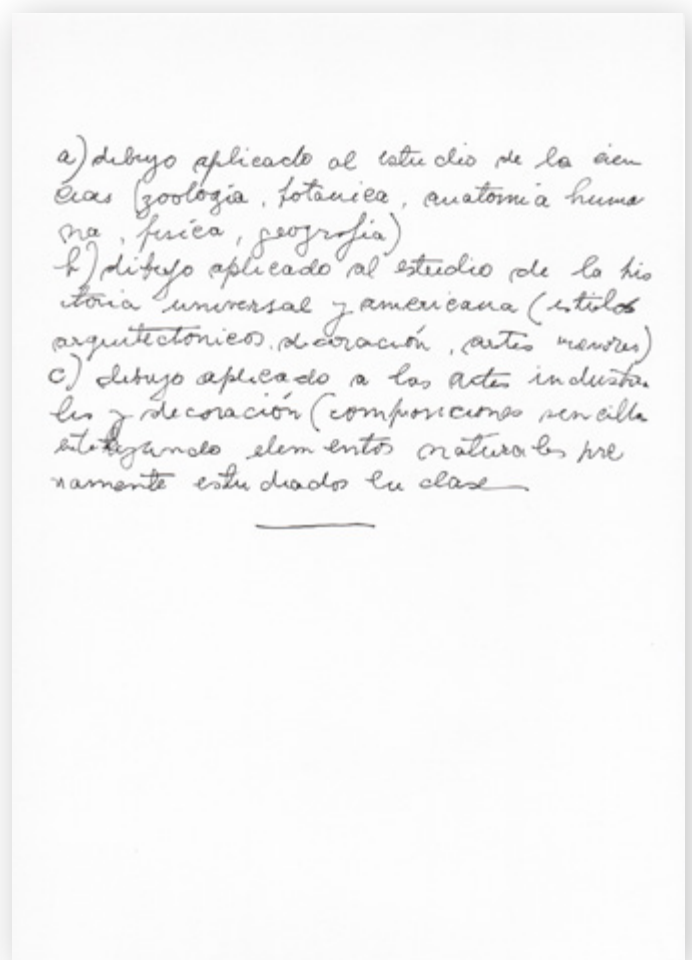 a) dibujo aplicado al estudio de la cien
cias (zoología, botanica, anatomia huma
na, fisica, geografia)
b) dibujo aplicado al estudio de la his
toria universal y americana (estilos
arquitectonicos, decoración, artes menores)
c) dibujo aplicado a las artes industria
les y decoración (composiciones sencilla
elementos naturales pre
viamente estudiados en clase